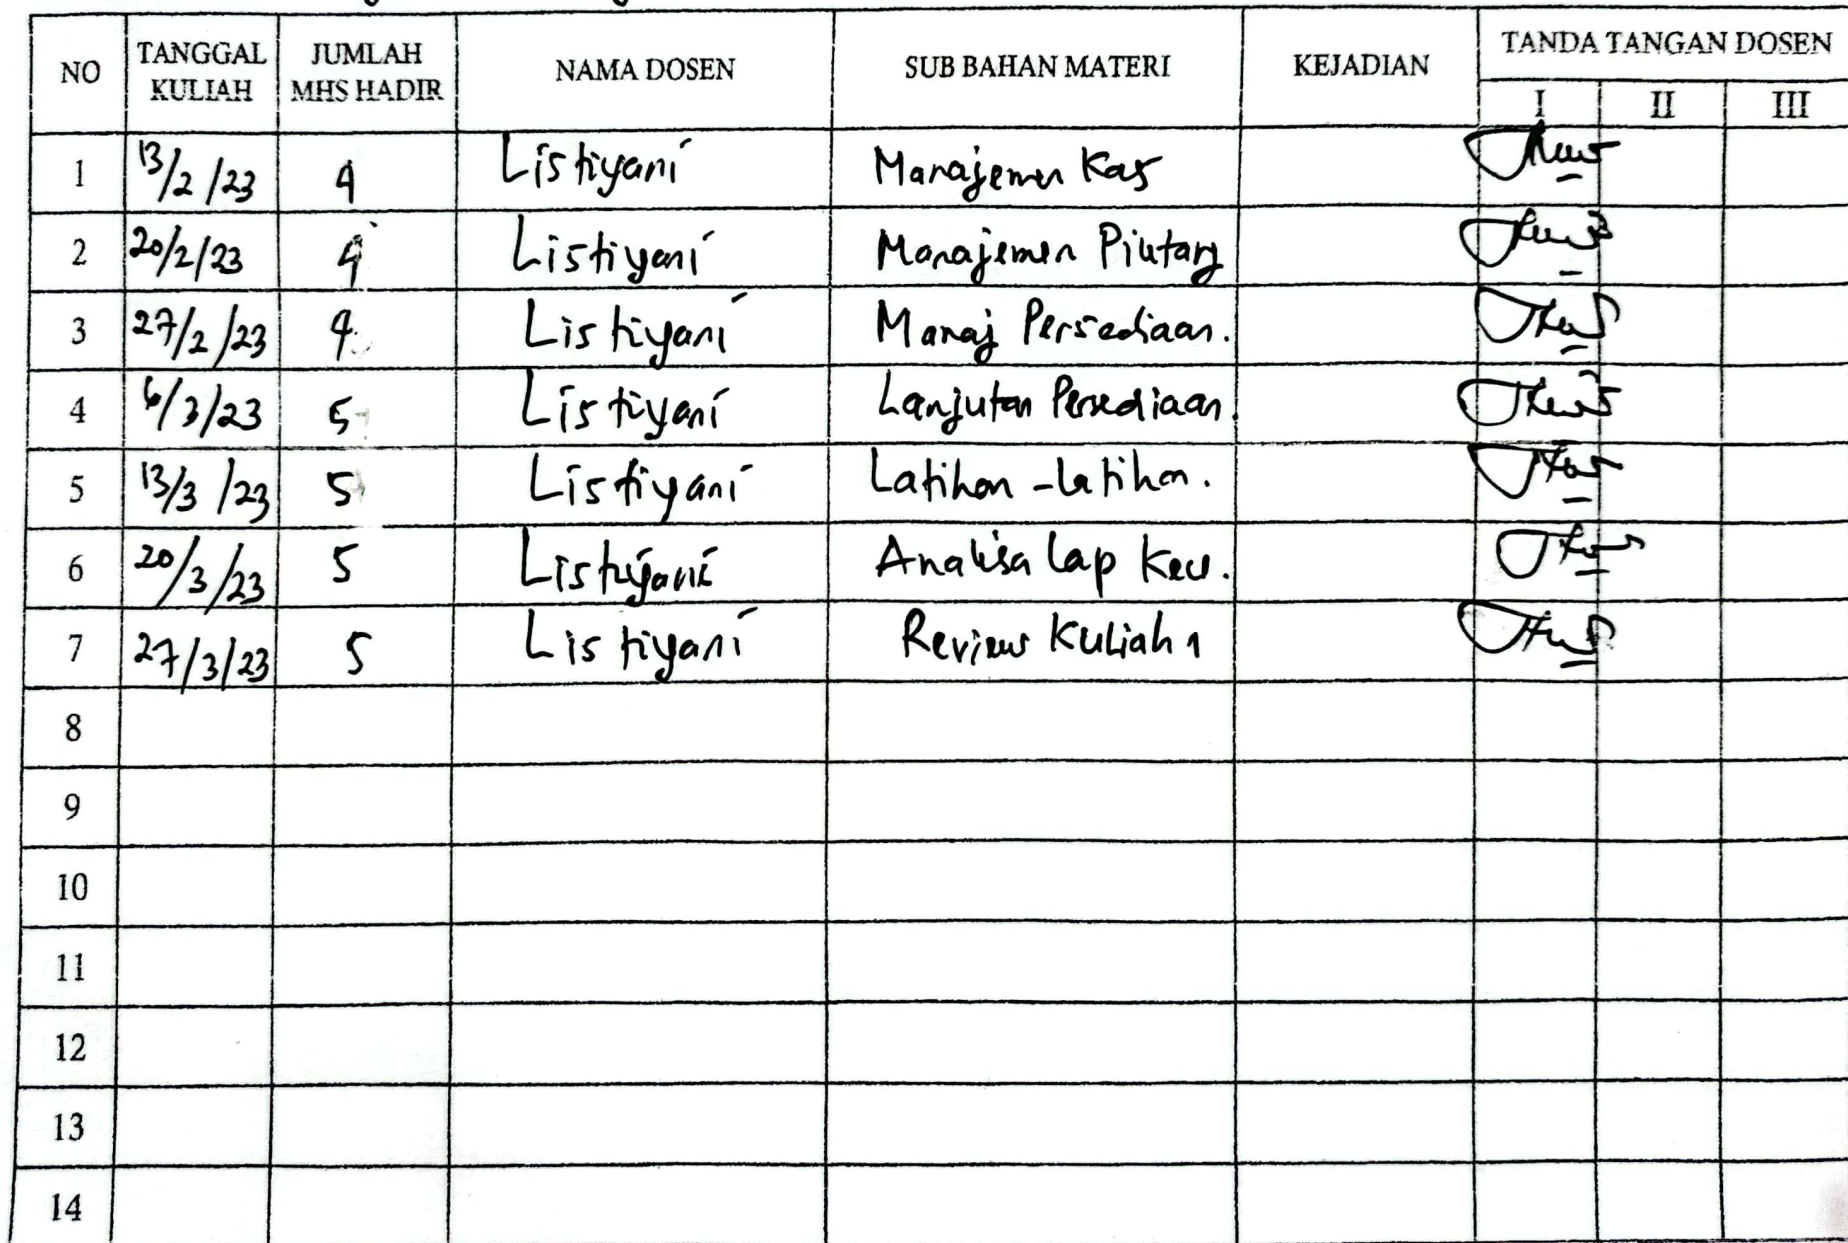 NO TANGGAL KULIAH JUMLAH MHS HADIR NAMA DOSEN SUB BAHAN MATERI KEJADIAN TANDA TANGAN DOSEN
I II III
1 13/2/23 4 Listiyani Manajemen Kas
2 20/2/23 4 Listiyani Manajemen Piutang
3 27/2/23 4 Listiyani Manaj Persediaan.
4 6/3/23 5 Listiyani Lanjutan Persediaan.
5 13/3/23 5 Listiyani Latihan-latihan.
6 20/3/23 5 Listiyani Analisa Lap Keu.
7 27/3/23 5 Listiyani Review Kuliah 1
8
9
10
11
12
13
14